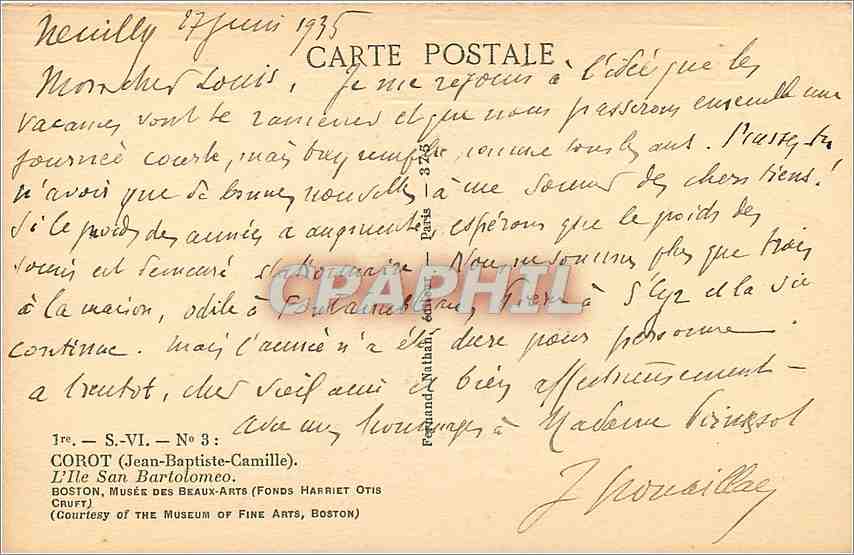 Neuilly 27 juin 1935
CARTE POSTALE
Mon cher Louis, Je me réjouis à l'idée que les
vacances vont te ramener et que nous passerons ensemble une
journée courte, mais bien remplie, comme tous les ans. Puisses-tu
n'avoir que de bonnes nouvelles à me donner des chers tiens!
Si le poids des années a augmenté, espérons que le poids des
soucis est demeuré stationnaire. Nous ne sommes plus que trois
à la maison, Odile à Fontainebleau, Pierre à St Cyr et la vie
continue. Mais l'année n'a été dure pour personne.
A bientôt, cher vieil ami et bien affectueusement –
avec mes hommages à Madame
J
Fernand Nathan, éditeur — Paris — 375
CPAPHIL
1re. — S.-VI. — No 3 :
COROT (Jean-Baptiste-Camille).
L'Ile San Bartolomeo.
BOSTON, MUSÉE DES BEAUX-ARTS (FONDS HARRIET OTIS
CRUFT)
(Courtesy of THE MUSEUM OF FINE ARTS, BOSTON)